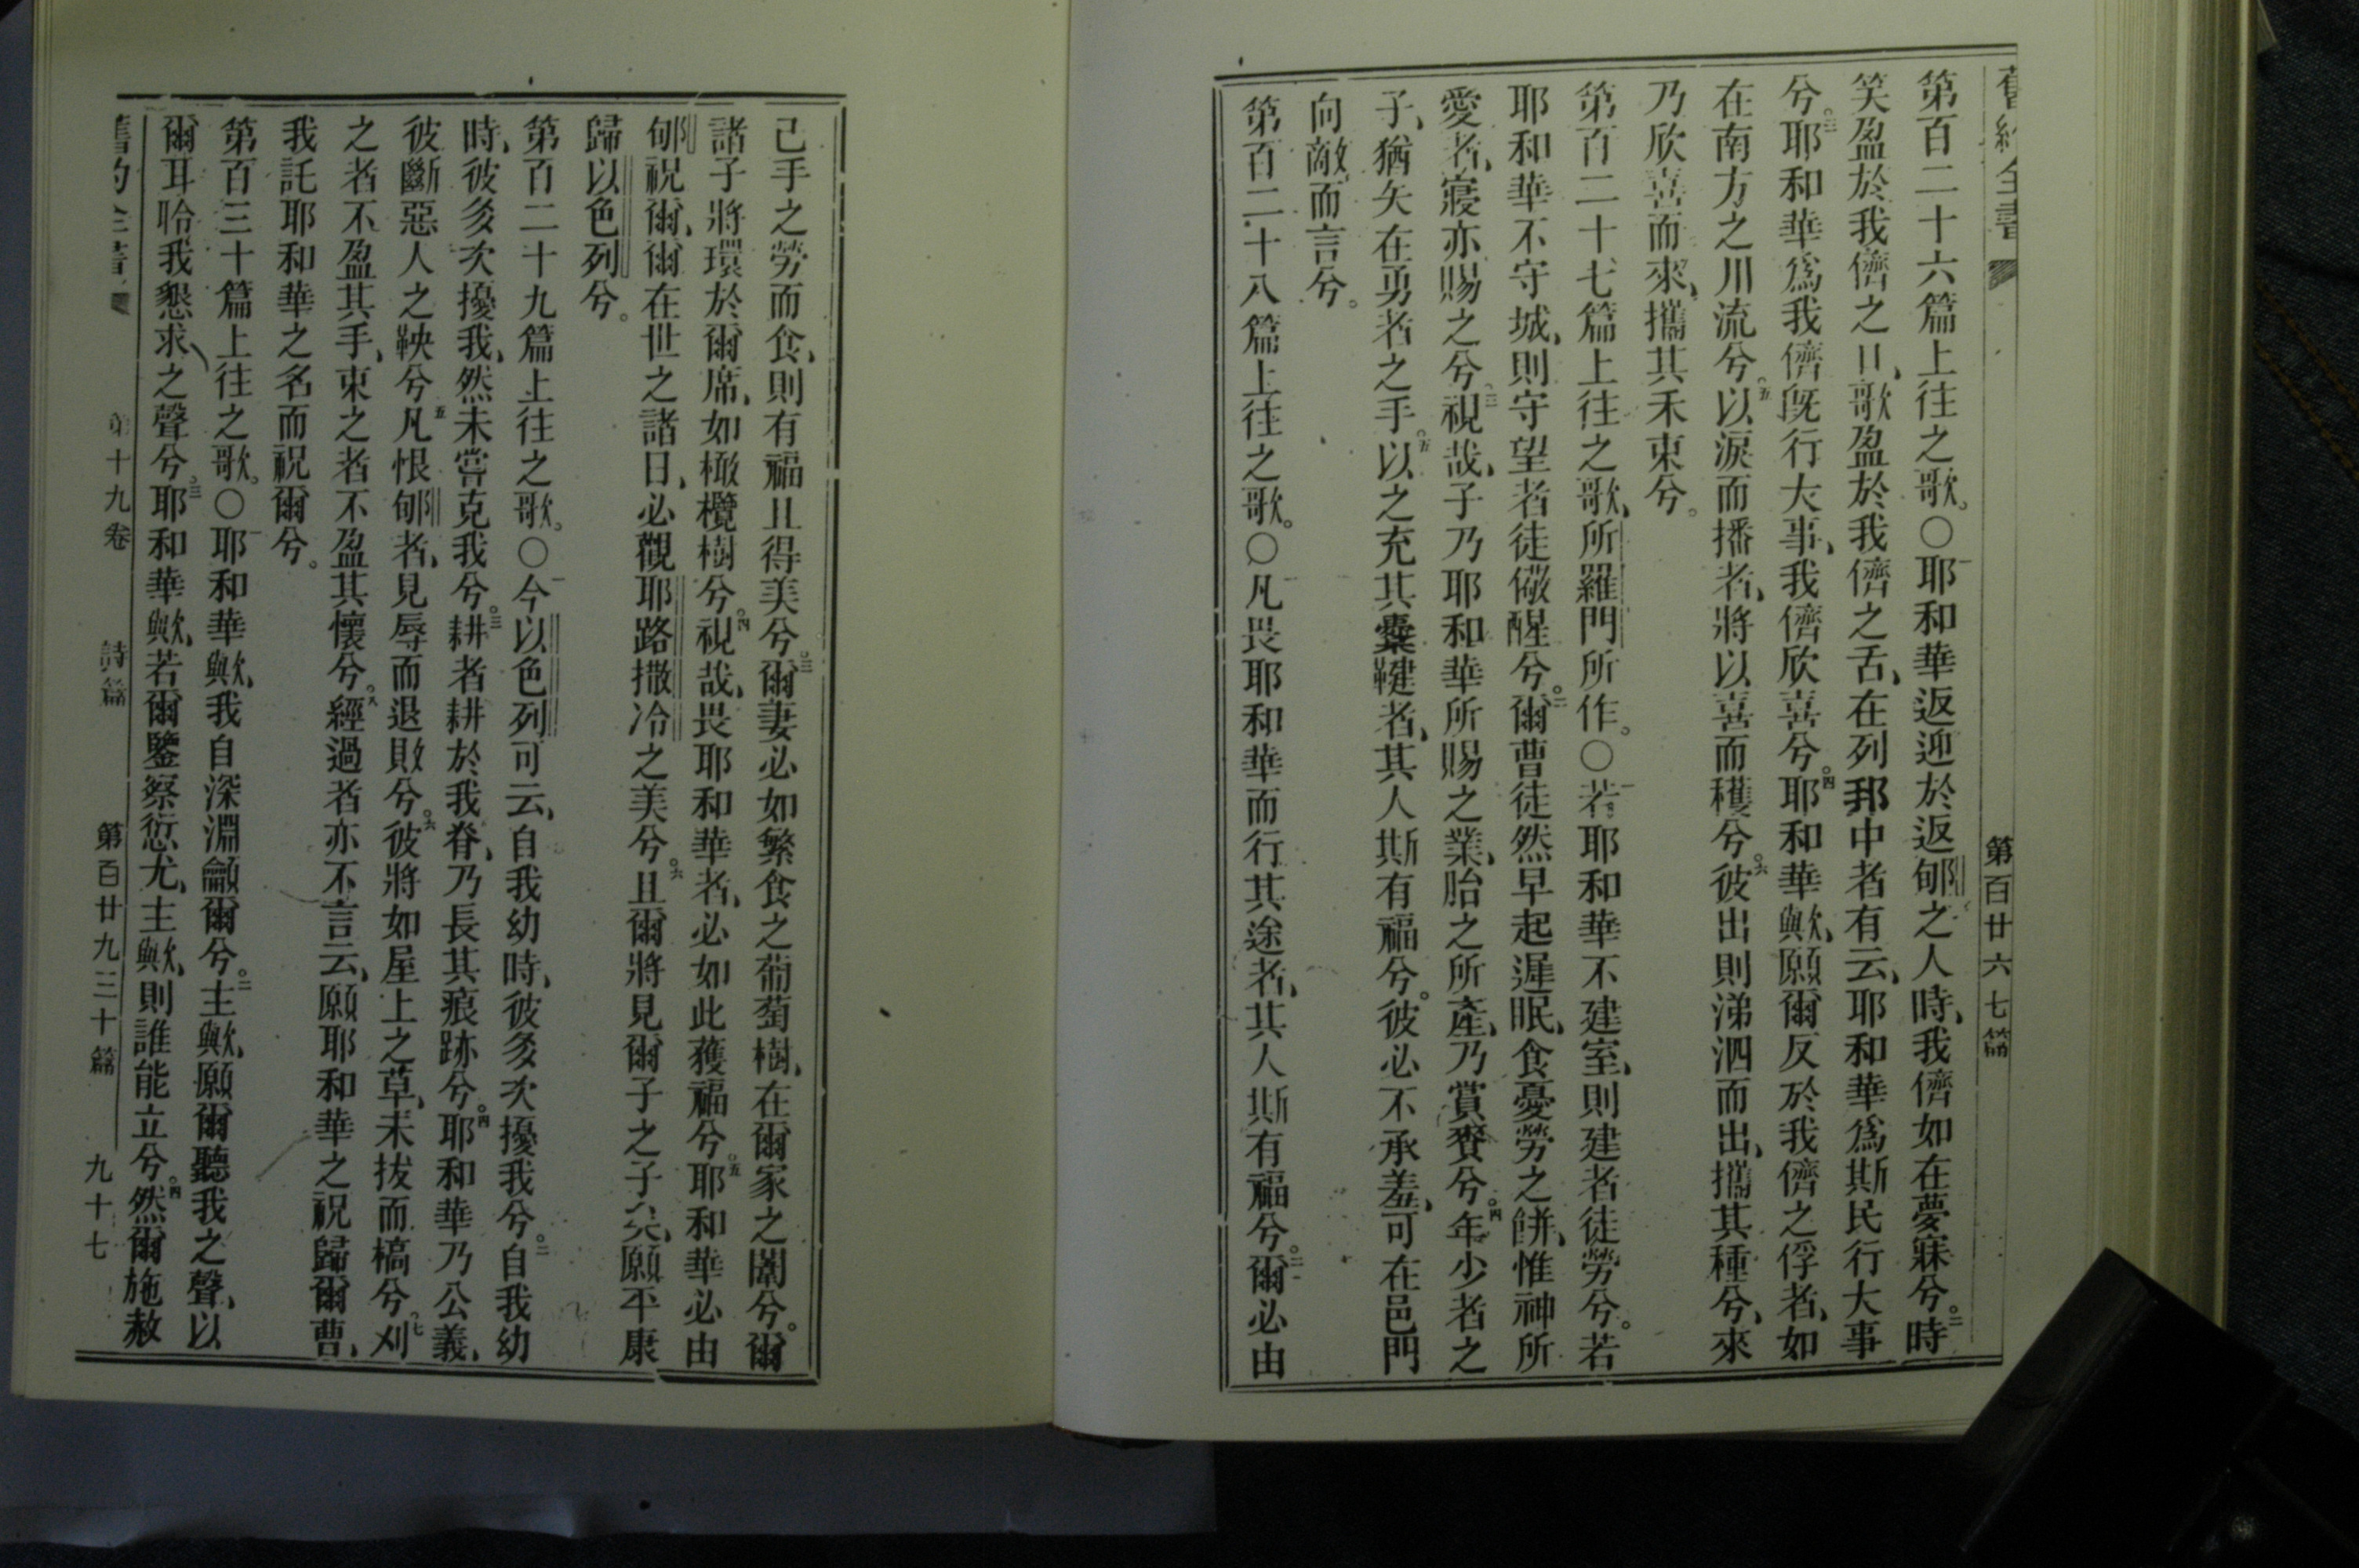 第百廿六七篇
第百二十六篇上往之歌。○一耶和華返迎於返郇之人時、我儕如在夢寐兮。二時
笑盈於我儕之口、歌盈於我儕之舌、在列邦中者有云、耶和華爲斯民行大事
兮。三耶和華爲我儕旣行大事、我儕欣喜兮。四耶和華歟、願爾反於我儕之俘者、如
在南方之川流兮。五以淚而播者、將以喜而穫兮。六彼出則涕泗而出、攜其種兮、來
乃欣喜而來、攜其禾束兮。
第百二十七篇上往之歌、所羅門所作。○一若耶和華不建室、則建者徒勞兮。若
耶和華不守城、則守望者徒儆醒兮。二爾曹徒然早起遲眠、食憂勞之餅、惟神所
愛者、寢亦賜之兮。三視哉、子乃耶和華所賜之業、胎之所產、乃賞賚兮。四年少者之
子、猶矢在勇者之手。五以之充其櫜鞬者、其人斯有福兮。彼必不承羞、可在邑門
向敵而言兮。
第百二十八篇上往之歌。○一凡畏耶和華而行其途者、其人斯有福兮。二爾必由
己手之勞而食、則有福且得美兮。三爾妻必如繁食之葡萄樹、在爾家之闈兮。爾
諸子將環於爾席、如橄欖樹兮。四視哉、畏耶和華者、必如此獲福兮。五耶和華必由
郇祝爾、爾在世之諸日、必觀耶路撒冷之美兮。六且爾將見爾子之子矣、願平康
歸以色列兮。
第百二十九篇上往之歌。○一今以色列可云、自我幼時、彼多次擾我兮。二自我幼
時、彼多次擾我、然未嘗克我兮。三耕者耕於我脊、乃長其痕跡兮。四耶和華乃公義、
彼斷惡人之鞅兮。五凡恨郇者、見辱而退敗兮。六彼將如屋上之草、未拔而槁兮。七刈
之者不盈其手、束之者不盈其懷兮。八經過者亦不言云、願耶和華之祝歸爾曹、
我託耶和華之名而祝爾兮。
第百三十篇上往之歌。○一耶和華歟、我自深淵龥爾兮。二主歟、願爾聽我之聲、以
爾耳聆我懇求之聲兮。三耶和華歟、若爾鑒察愆尤、主歟、則誰能立兮。四然爾施赦
第十九卷 詩篇 第百廿九三十篇 九十七